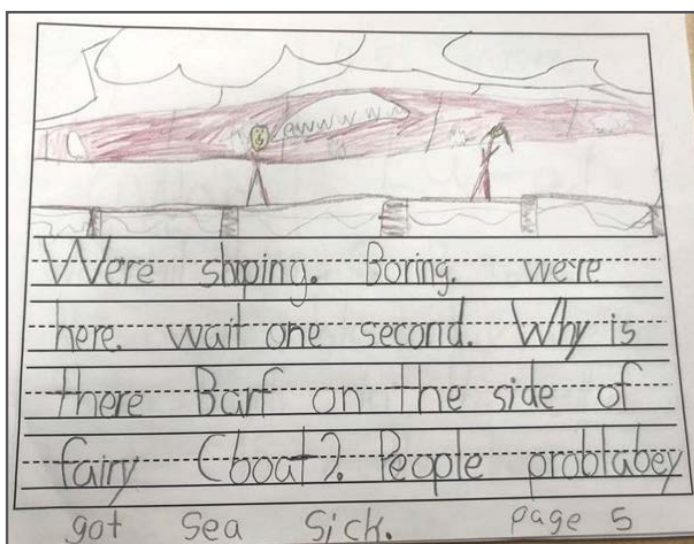 ewwwww
Were shiping. Boring. we're
here. wait one second. Why is
there Barf on the side of
fairy (boat). People problabey
got sea sick. page 5